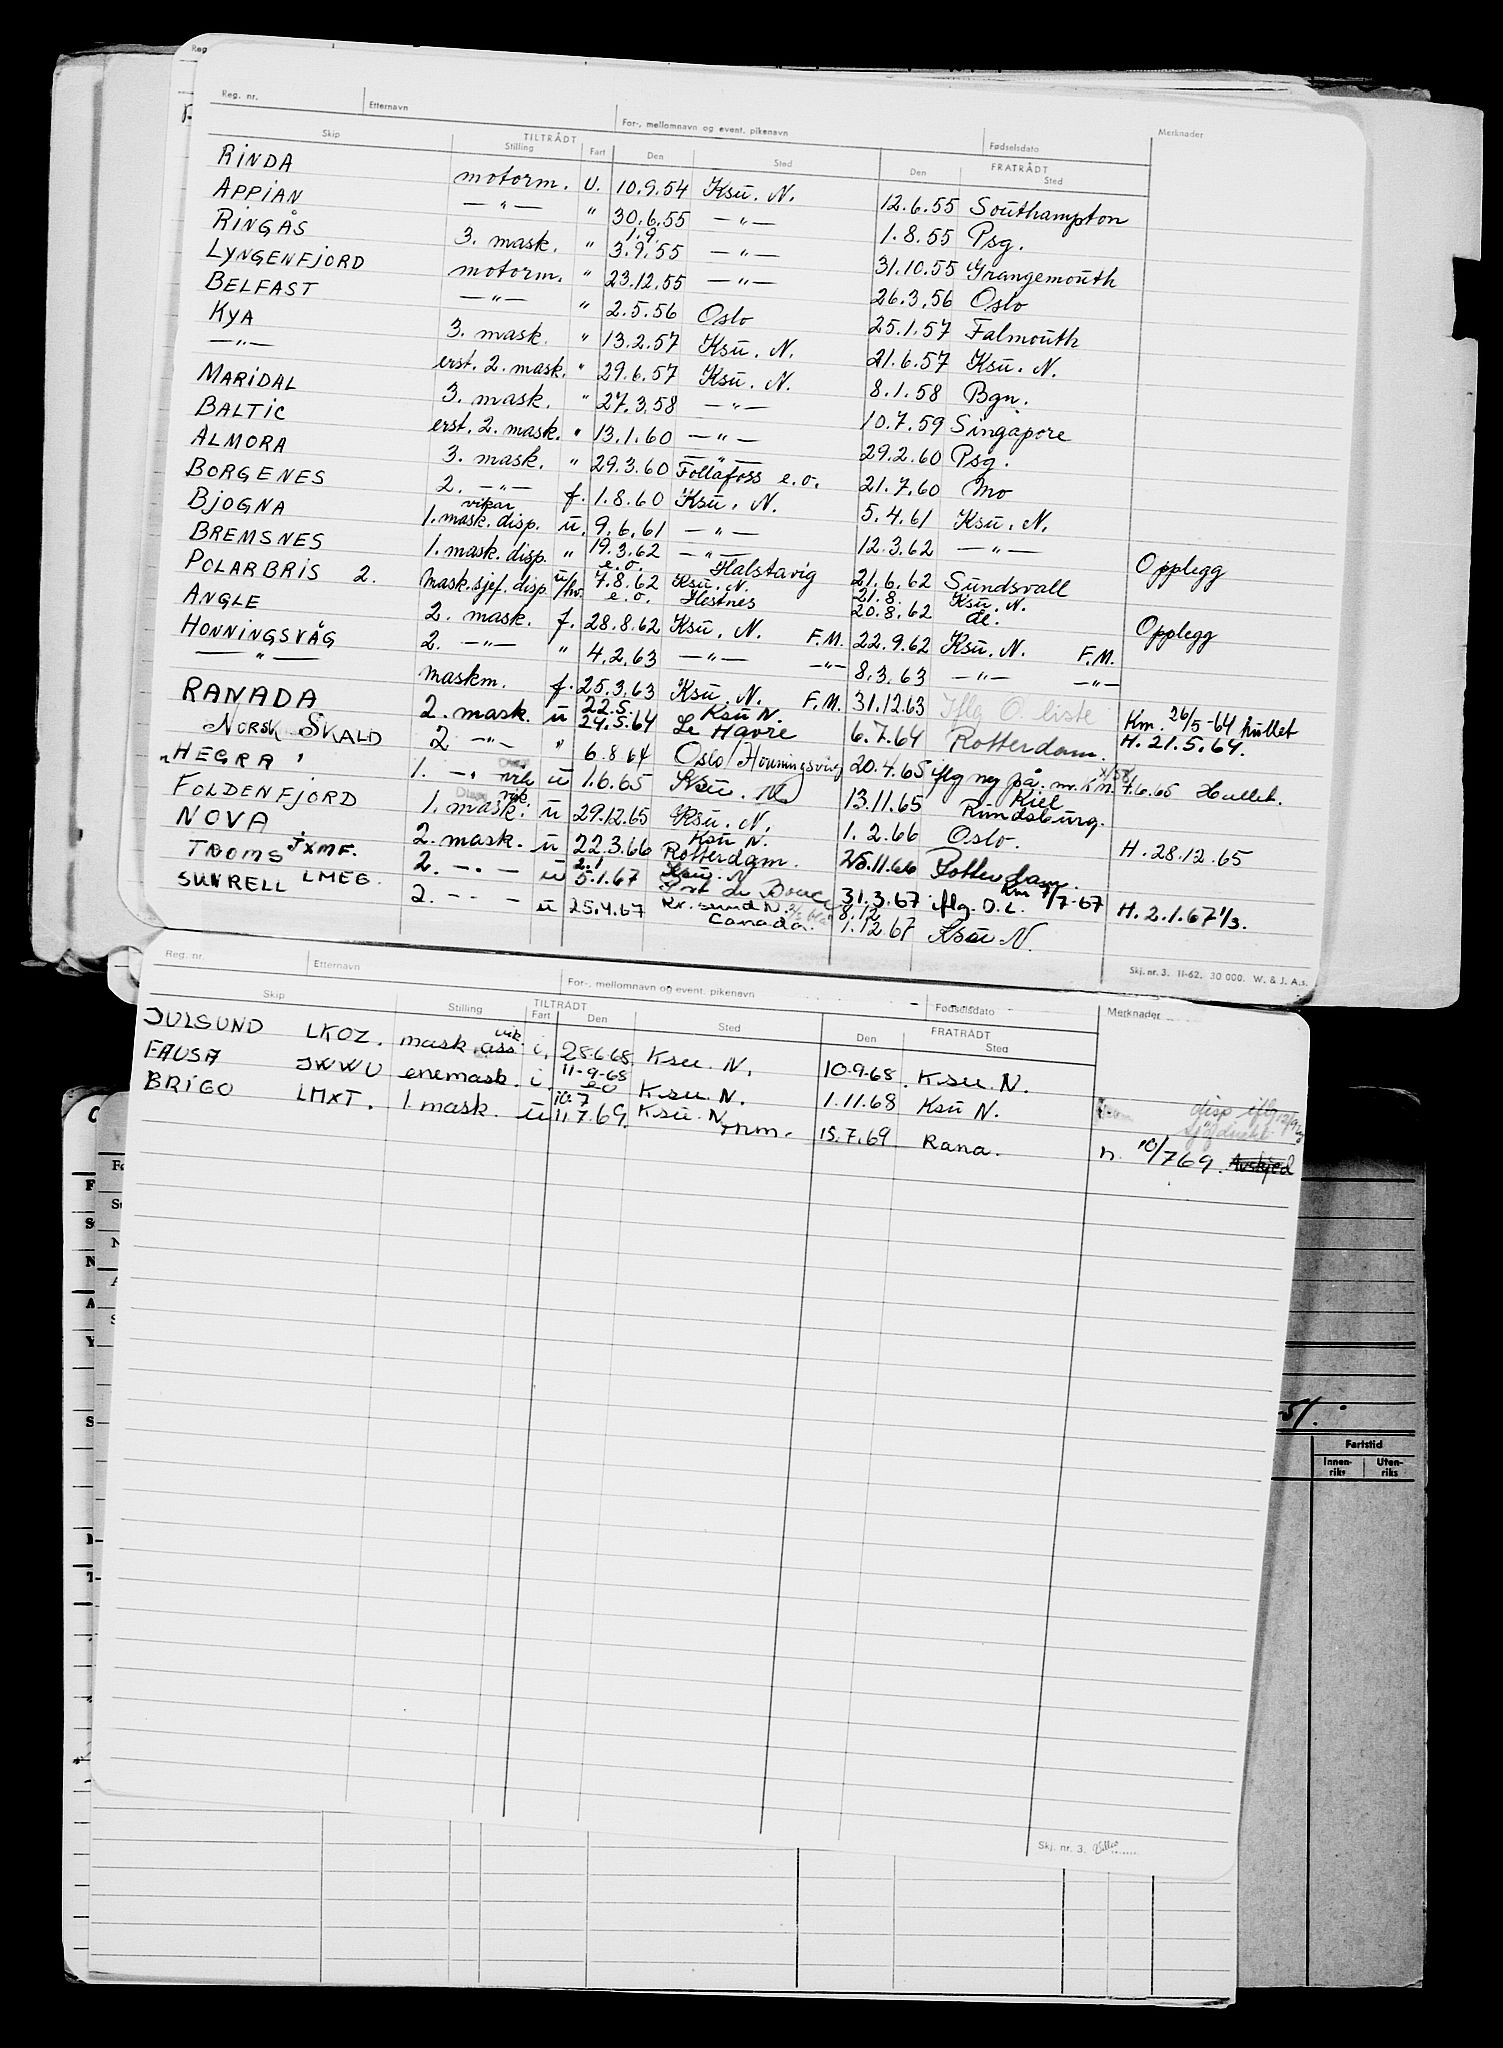 Reg. nr. Etternavn For-, mellomnavn og event. pikenavn Fødselsdato Merknader
Skip TILTRÅDT Stilling Fart Den Sted FRATRÅDT Den Sted
RINDA motorm. U. 10.9.54 Ksu. N. 12.6.55 Southampton
APPIAN —"— " 30.6.55 —"— 1.8.55 Psg.
RINGÅS 3. mask. " 1.9. 3.9.55 —"— 31.10.55 Grangemouth
LYNGENFJORD motorm. " 23.12.55 —"— 26.3.56 Oslo
BELFAST —"— " 2.5.56 Oslo 25.1.57 Falmouth
KYA 3. mask. " 13.2.57 Ksu. N. 21.6.57 Ksu. N.
—"— erst. 2. mask. " 29.6.57 Ksu. N. 8.1.58 Bgn.
MARIDAL 3. mask. " 27.3.58 —"— 10.7.59 Singapore
BALTIC erst. 2. mask. " 13.1.60 —"— 29.2.60 Psg.
ALMORA 3. mask. " 29.3.60 Follafoss e.o. 21.7.60 Mo
BORGENES 2. —"— f. 1.8.60 Ksu. N. 5.4.61 Ksu. N.
BJOGNA vikar 1. mask. disp. u. 9.6.61 —"— 12.3.62 —"— Opplegg
BREMSNES 1. mask. disp. " 19.3.62 e.o. —"— Halstavig 21.6.62 Sundsvall
POLARBRIS 2. mask.sjef. disp. u/hv. 7.8.62 e.o. Ksu. N. Hestnes 21.8. 20.8.62 Ksu. N. de. Opplegg
ANGLE 2. mask. f. 28.8.62 Ksu. N. F.M. 22.9.62 Ksu. N. F.M.
HONNINGSVÅG 2. —"— " 4.2.63 —"— —"— 8.3.63 —"— —"—
—"— maskm. f. 25.3.63 Ksu. N. F.M. 31.12.63 Iflg O. liste
RANADA 2. mask. u 22.5. 24.5.64 Ksu N. Le Havre 6.7.64 Rotterdam. Km 26/5-64 hullet H. 21.5.64.
NORSK SKALD 2 —"— " 6.8.64 Oslo/Honningsvåg 20.4.65 iflg
"HEGRA" 1. —"— vik u 1.6.65 Ksu. N. 13.11.65 Kiel Rundsburg. 7.6.65 Hullet.
FOLDENFJORD 1. mask. vik. u 29.12.65 Ksu. N. 1.2.66 Oslo. H. 28.12.65
NOVA 2. mask. u 22.3.66 Ksu N. Rotterdam. 25.11.66 Rotterdam.
TROMS JXMF. 2. —.— u 2.1 5.1.67 Ksu. N Port de Bouc 31.3.67 iflg. O.L. Km 7/7-67 H. 2.1.67 1/3.
SUNRELL LMEG. 2. —.— u 25.4.67 Kr.sund N. Canada. 8.12 1.12.67 Ksu N.
Skj. nr. 3. 11-62. 30 000. W. & J. A.s.
Reg. nr. Etternavn For-, mellomnavn og event. pikenavn Fødselsdato Merknader
Skip Stilling TILTRÅDT Fart Den Sted FRATRÅDT Den Sted
JULSUND LKOZ. mask.ass vik. i. 28.6.68 Ksu N. 10.9.68. Ksu. N.
FAUSA JWWU enemask. i. 11-9-68 eo Ksu. N. 1.11.68 Ksu N.
BRIGO LMXT. 1. mask. u 10.7 11.7.69. Ksu. N. Trhm. 15.7.69 Rana. disp iflg h. 10/7 69. Avskjed
51.
Fartstid
Innen-riks Uten-riks
Skj. nr. 3.